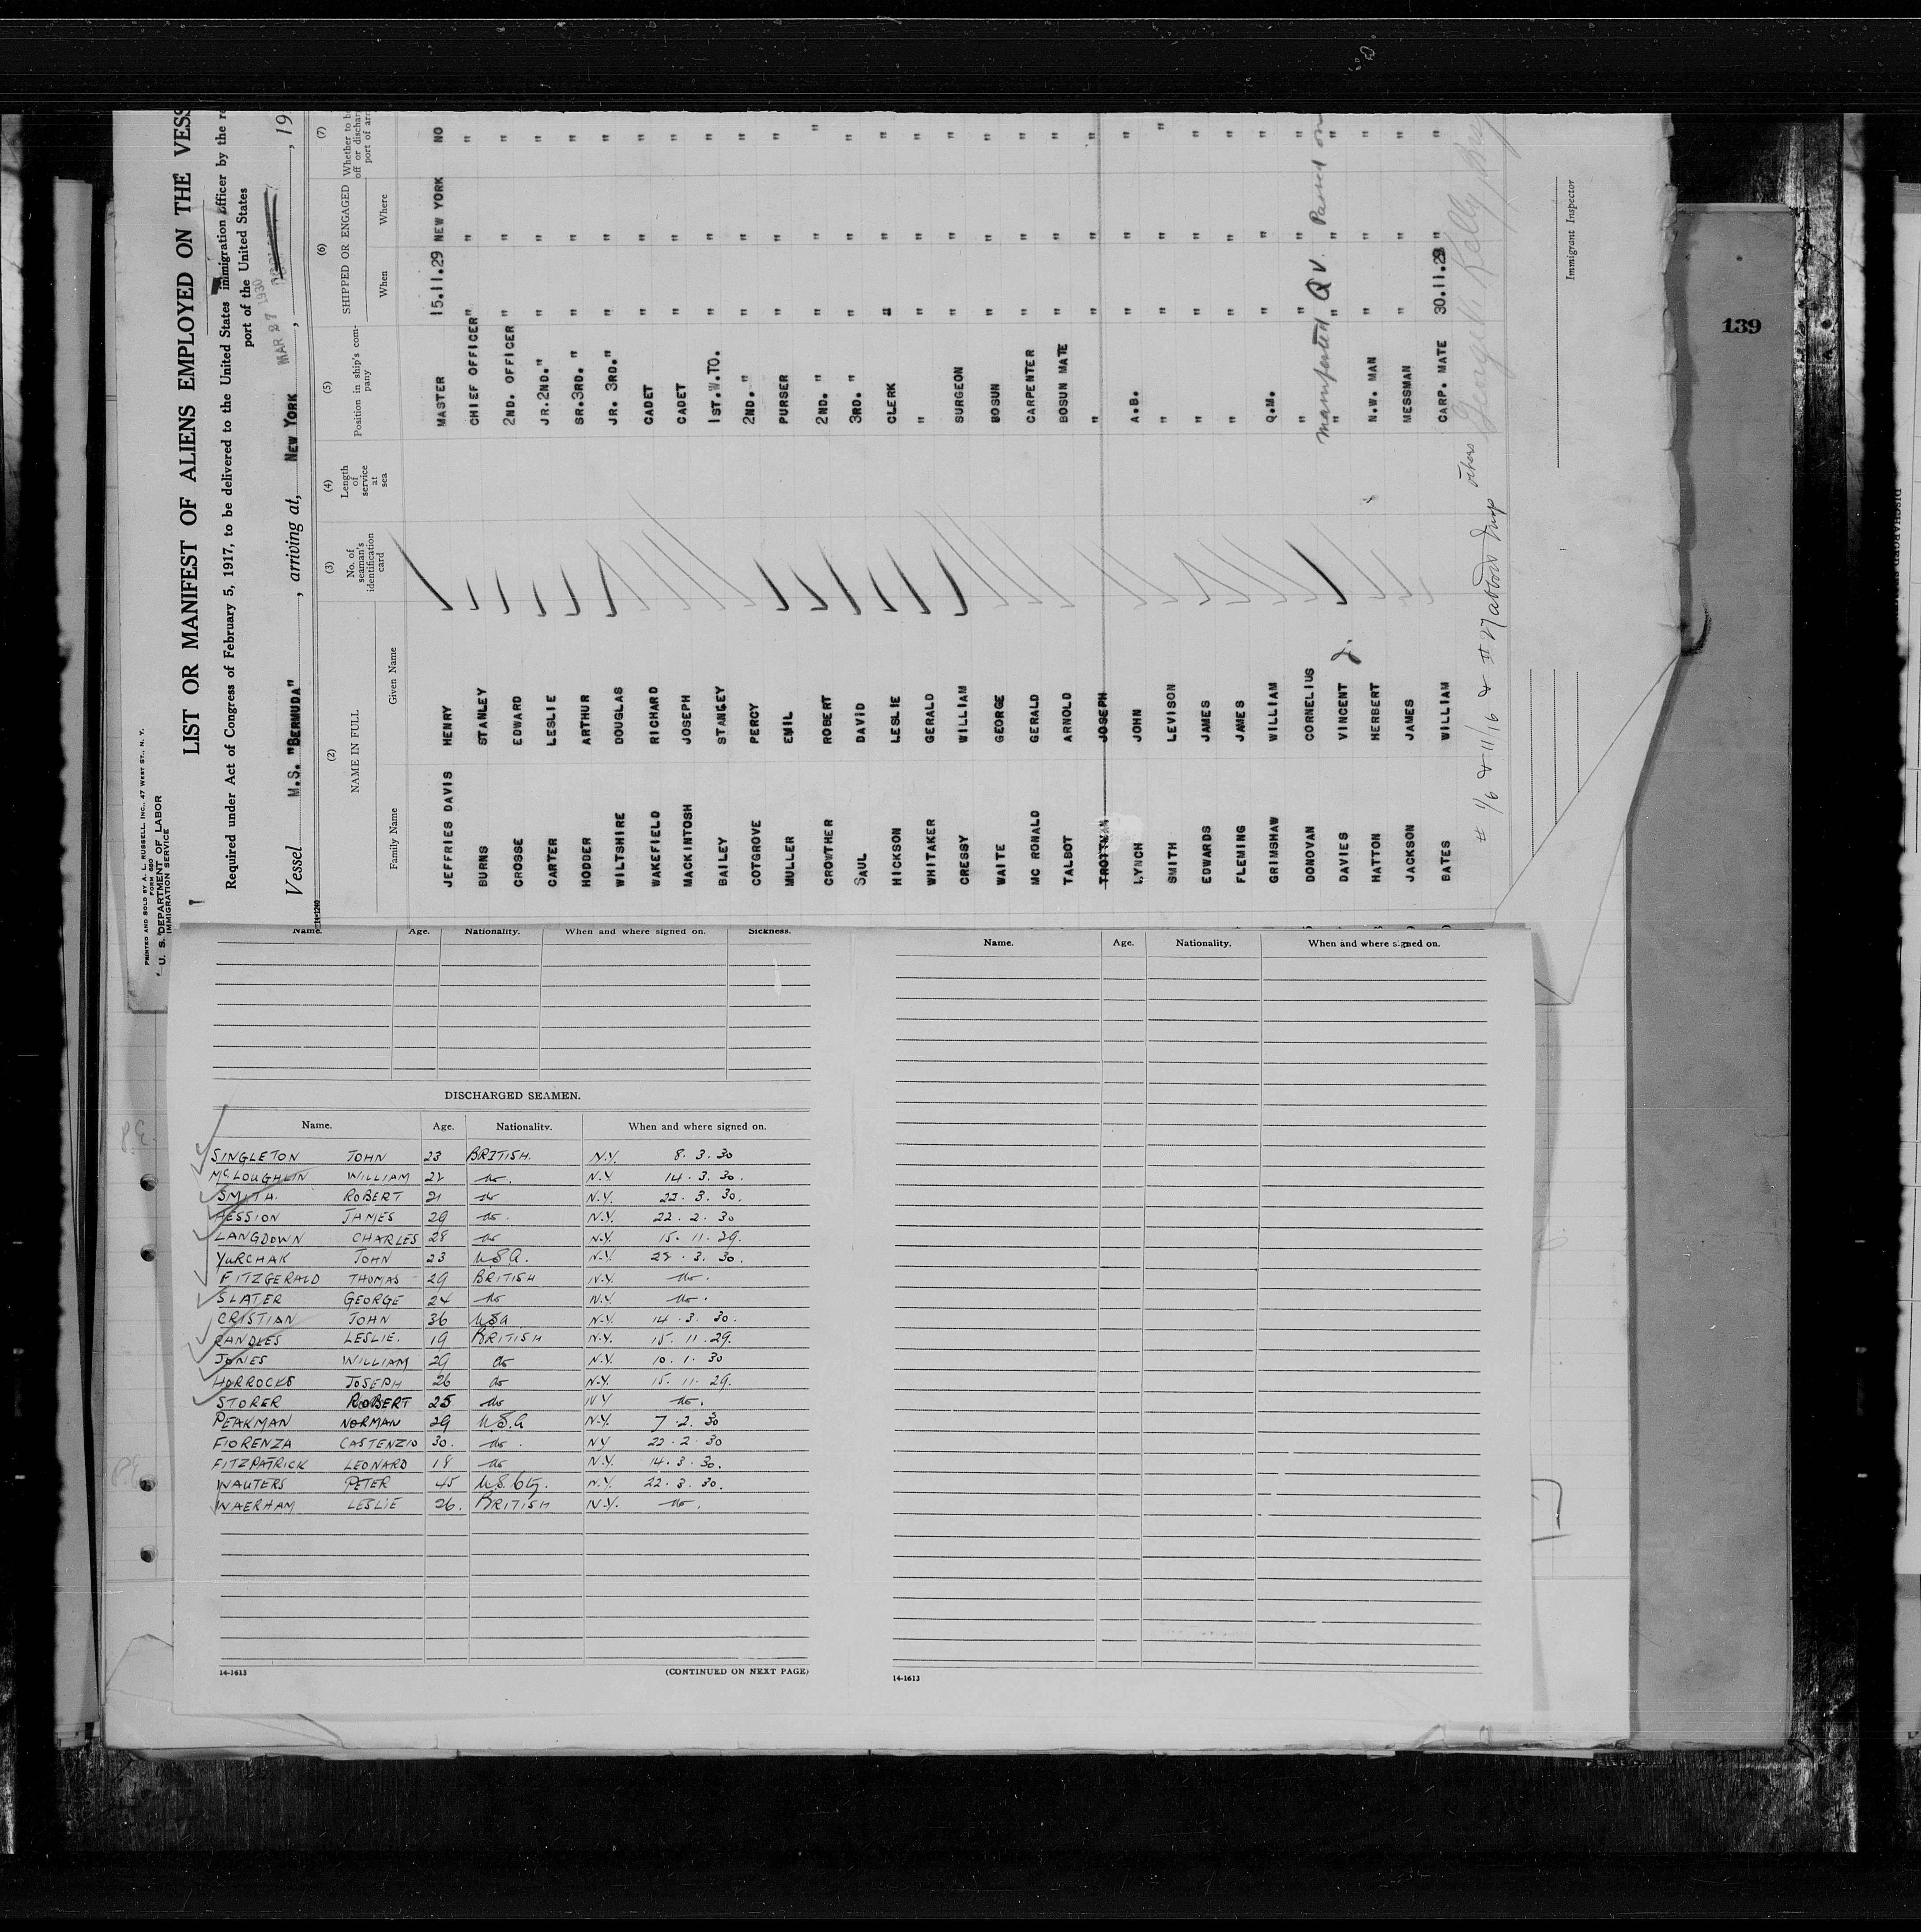 PRINTED AND SOLD BY A. L. RUSSELL, INC., 47 WEST ST., N. Y.
FORM 680
U. S. DEPARTMENT OF LABOR
IMMIGRATION SERVICE
LIST OR MANIFEST OF ALIENS EMPLOYED ON THE VESS
Required under Act of Congress of February 5, 1917, to be delivered to the United States immigration officer by the re
port of the United States
Vessel M.S. "BERMUDA", arriving at, NEW YORK, MAR 27 1930, 19
(2) (3) (4) (5) (6) (7)
NAME IN FULL No. of seaman's identification card Length of service at sea Position in ship's company SHIPPED OR ENGAGED Whether to be off or dischar port of arr
Family Name Given Name When Where
JEFFRIES DAVIS HENRY MASTER 15.11.29 NEW YORK NO
BURNS STANLEY CHIEF OFFICER " " "
CROSSE EDWARD 2ND. OFFICER " " "
CARTER LESLIE JR.2ND." " " "
HODDER ARTHUR SR.3RD. " " " "
WILTSHIRE DOUGLAS JR. 3RD." " " "
WAKEFIELD RICHARD CADET " " "
MACKINTOSH JOSEPH CADET " " "
BAILEY STANLEY 1ST.W.TO. " " "
COTGROVE PERCY 2ND. " " " "
MULLER EMIL PURSER " " "
CROWTHER ROBERT 2ND. " " " "
SAUL DAVID 3RD. " " " "
HICKSON LESLIE CLERK " " "
WHITAKER GERALD " " " "
CRESSY WILLIAM SURGEON " " "
WAITE GEORGE BOSUN " " "
MC RONALD GERALD CARPENTER " " "
TALBOT ARNOLD BOSUN MATE " " "
TROTTMAN JOSEPH " " " "
LYNCH JOHN A.B. " " "
SMITH LEVISON " " " "
EDWARDS JAMES " " " "
FLEMING JAMES " " " "
GRIMSHAW WILLIAM Q.M. " " "
DONOVAN CORNELIUS " " " "
manifested Q V. Parent on
DAVIES VINCENT J. " " " "
HATTON HERBERT N.W. MAN " " "
JACKSON JAMES MESSMAN " " "
BATES WILLIAM CARP. MATE 30.11.29 " "
# 1/6 & 11/16 & # 27 above
others
Immigrant Inspector
139
Name. Age. Nationality. When and where signed on. Sickness.
DISCHARGED SEAMEN.
Name. Age. Nationality. When and where signed on.
SINGLETON JOHN 23 BRITISH. N.Y. 8. 3. 30
McLOUGHLIN WILLIAM 22 do. N.Y. 14. 3. 30.
SMITH. ROBERT 21 do N.Y. 22. 3. 30.
HESSION JAMES 29 do. N.Y. 22. 2. 30
LANGDOWN CHARLES 28 do N.Y. 15. 11. 29.
YURCHAK JOHN 23 U.S.A. N.Y. 22. 3. 30.
FITZGERALD THOMAS 29 BRITISH N.Y. do.
SLATER GEORGE 24 do N.Y. do.
CRISTIAN JOHN 36 USA N.Y. 14. 3. 30.
RANDLES LESLIE. 19 BRITISH N.Y. 15. 11. 29.
JONES WILLIAM 29 do N.Y. 10. 1. 30
HORROCKS JOSEPH 26 do N.Y. 15. 11. 29.
STORER ROBERT 25 do NY do.
PEAKMAN NORMAN 29 U.S.A N.Y. 7. 2. 30
FIORENZA CASTENZIO 30. do. NY 22. 2. 30
FITZPATRICK LEONARD 18 do N.Y. 14. 3. 30.
WAUTERS PETER 45 U.S. Ctz. N.Y. 22. 3. 30.
WAERHAM LESLIE 26. BRITISH N.Y. do.
14-1613 (CONTINUED ON NEXT PAGE)
Name. Age. Nationality. When and where signed on.
14-1613